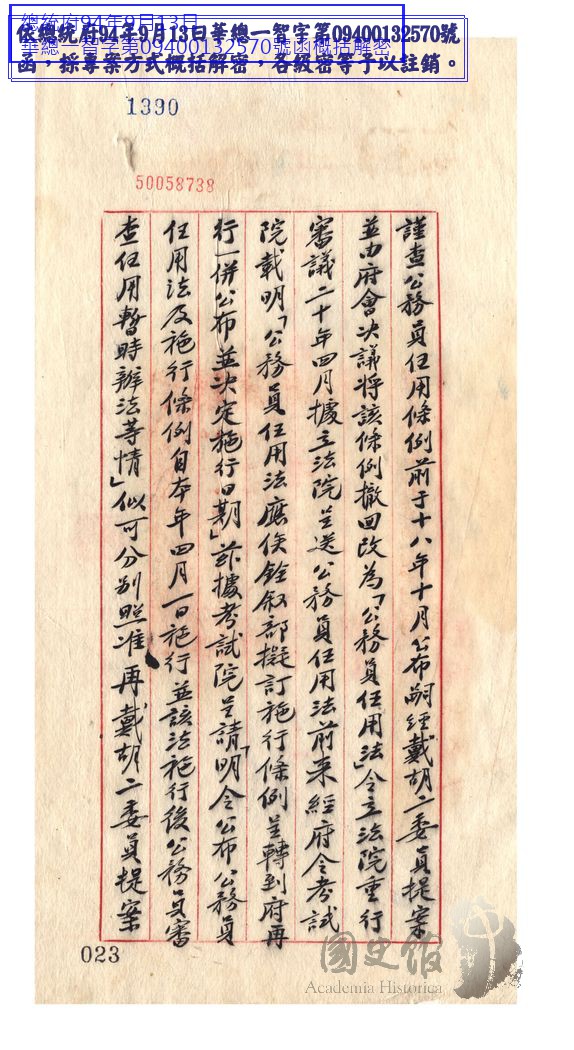 總統府94年9月13日
華總一智字第09400132570號函概括解密
依總統府94年9月13日華總一智字第09400132570號
函，採專案方式概括解密，各級密等予以註銷。
1390
50058738
謹查公務員任用條例前于十八年十月公布嗣經戴胡二委員提案
並由府會決議將該條例撤回改為「公務員任用法」令立法院重行
審議二十年四月據立法院呈送公務員任用法前來經府令考試
院載明「公務員任用法應俟銓敘部擬訂施行條例呈轉到府再
行一併公布並決定施行日期」茲據考試院呈請「明令公布公務員
任用法及施行條例自本年四月一日施行並該法施行後公務員審
查任用暫時辦法等情」似可分別照准再戴胡二委員提案
023
國史館
Academia Historica